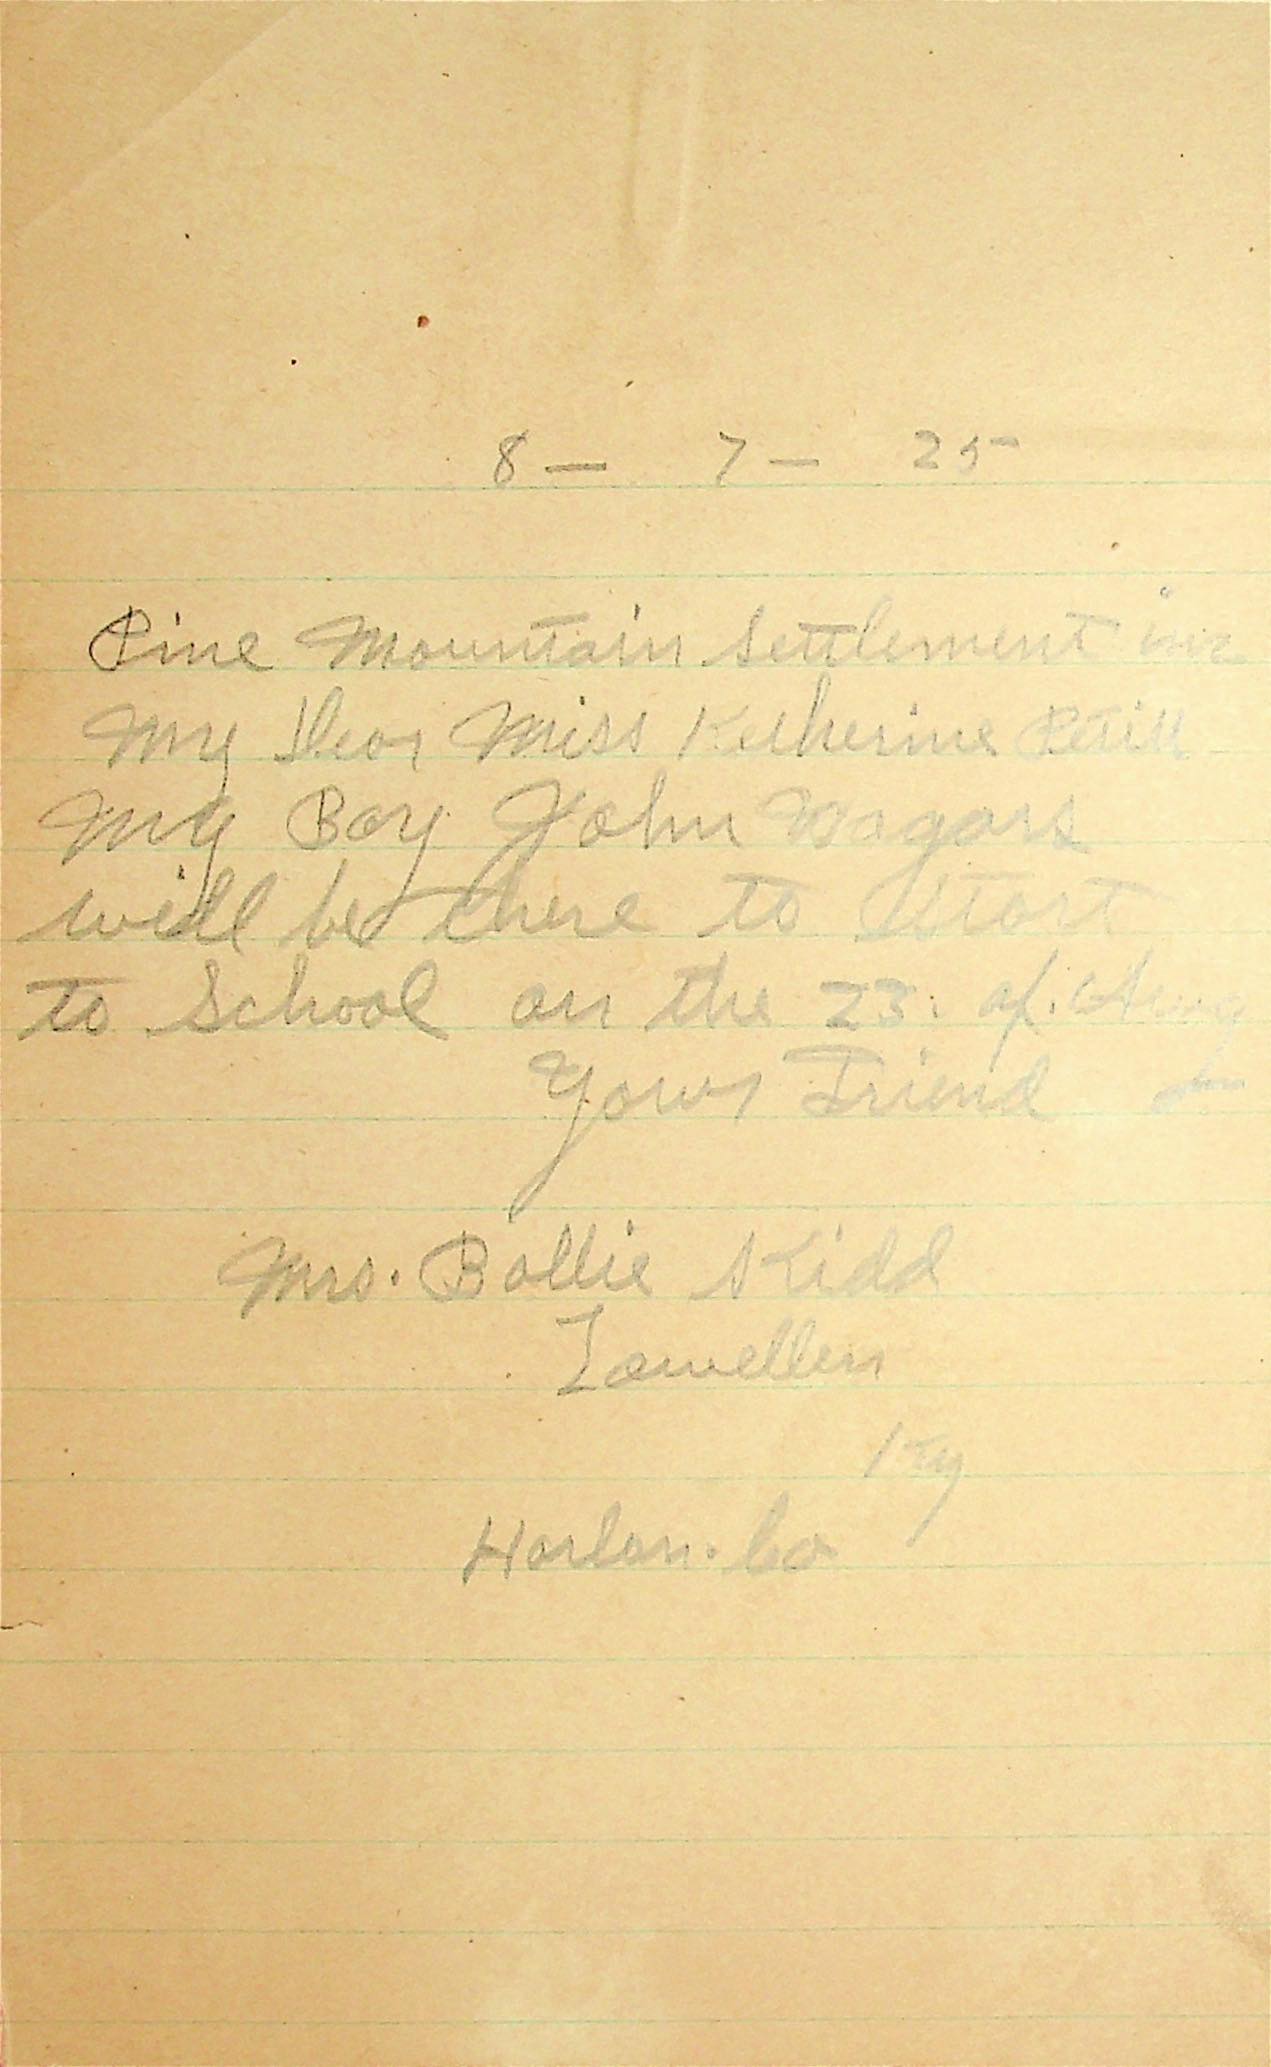 8 — 7 — 25
Pine Mountain Settlement inc
My Dear Miss Katherine Petitt
My Boy John Wagars
will be there to Start
to School on the 23. of. Aug
Your Friend
Mrs. Bollie Kidd
Lowellen
Ky
Harlan. Co